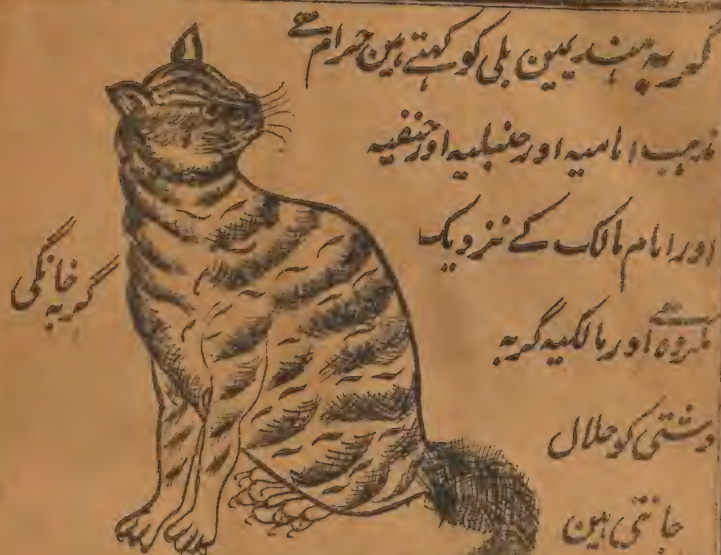 گربہ ہندیمین بلی کو کہتے ہین حرام ہے
مذہب امامیہ اور حنبلیہ اور حنفیہ
اور امام مالک کے نزدیک
مکروہ ہے اور مالکیہ گربہ
دشتی کو حلال
جانتی ہین
گربہ خانگی